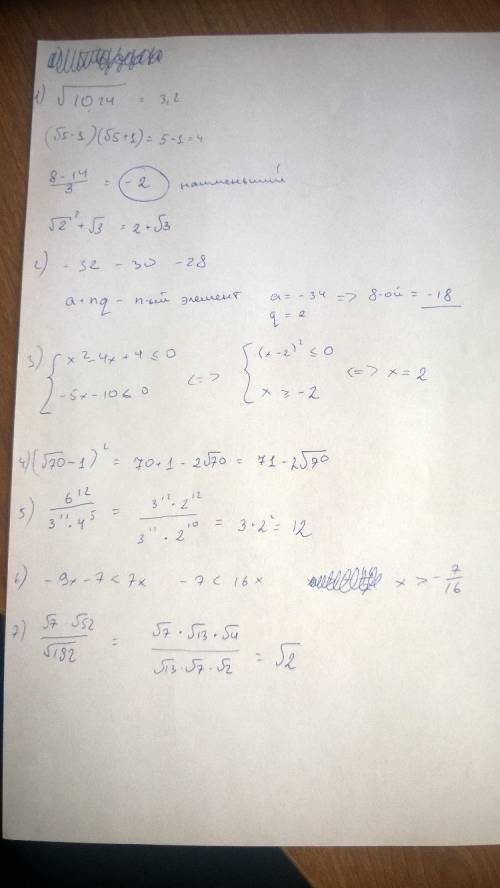 1) √10.24 = 3,2
(√5-1)(√5+1) = 5-1 = 4
(8-14)/3 = -2 наименьший
√2² + √3 = 2+√3
2) -32 -30 -28
a+nq - n-ый элемент a = -34 => 8-ой = -18
q = 2
3) { x²-4x+4≤0 <=> { (x-2)² ≤ 0 <=> x = 2
-5x-10≤0 x ≥ -2
4) (√70-1)² = 70+1-2√70 = 71-2√70
5) 6¹²/(3¹¹·4⁵) = (3¹²·2¹²)/(3¹¹·2¹⁰) = 3·2² = 12
6) -9x-7<7x -7<16x x > -7/16
7) (√7·√52)/√182 = (√7·√13·√4)/(√13·√7·√2) = √2